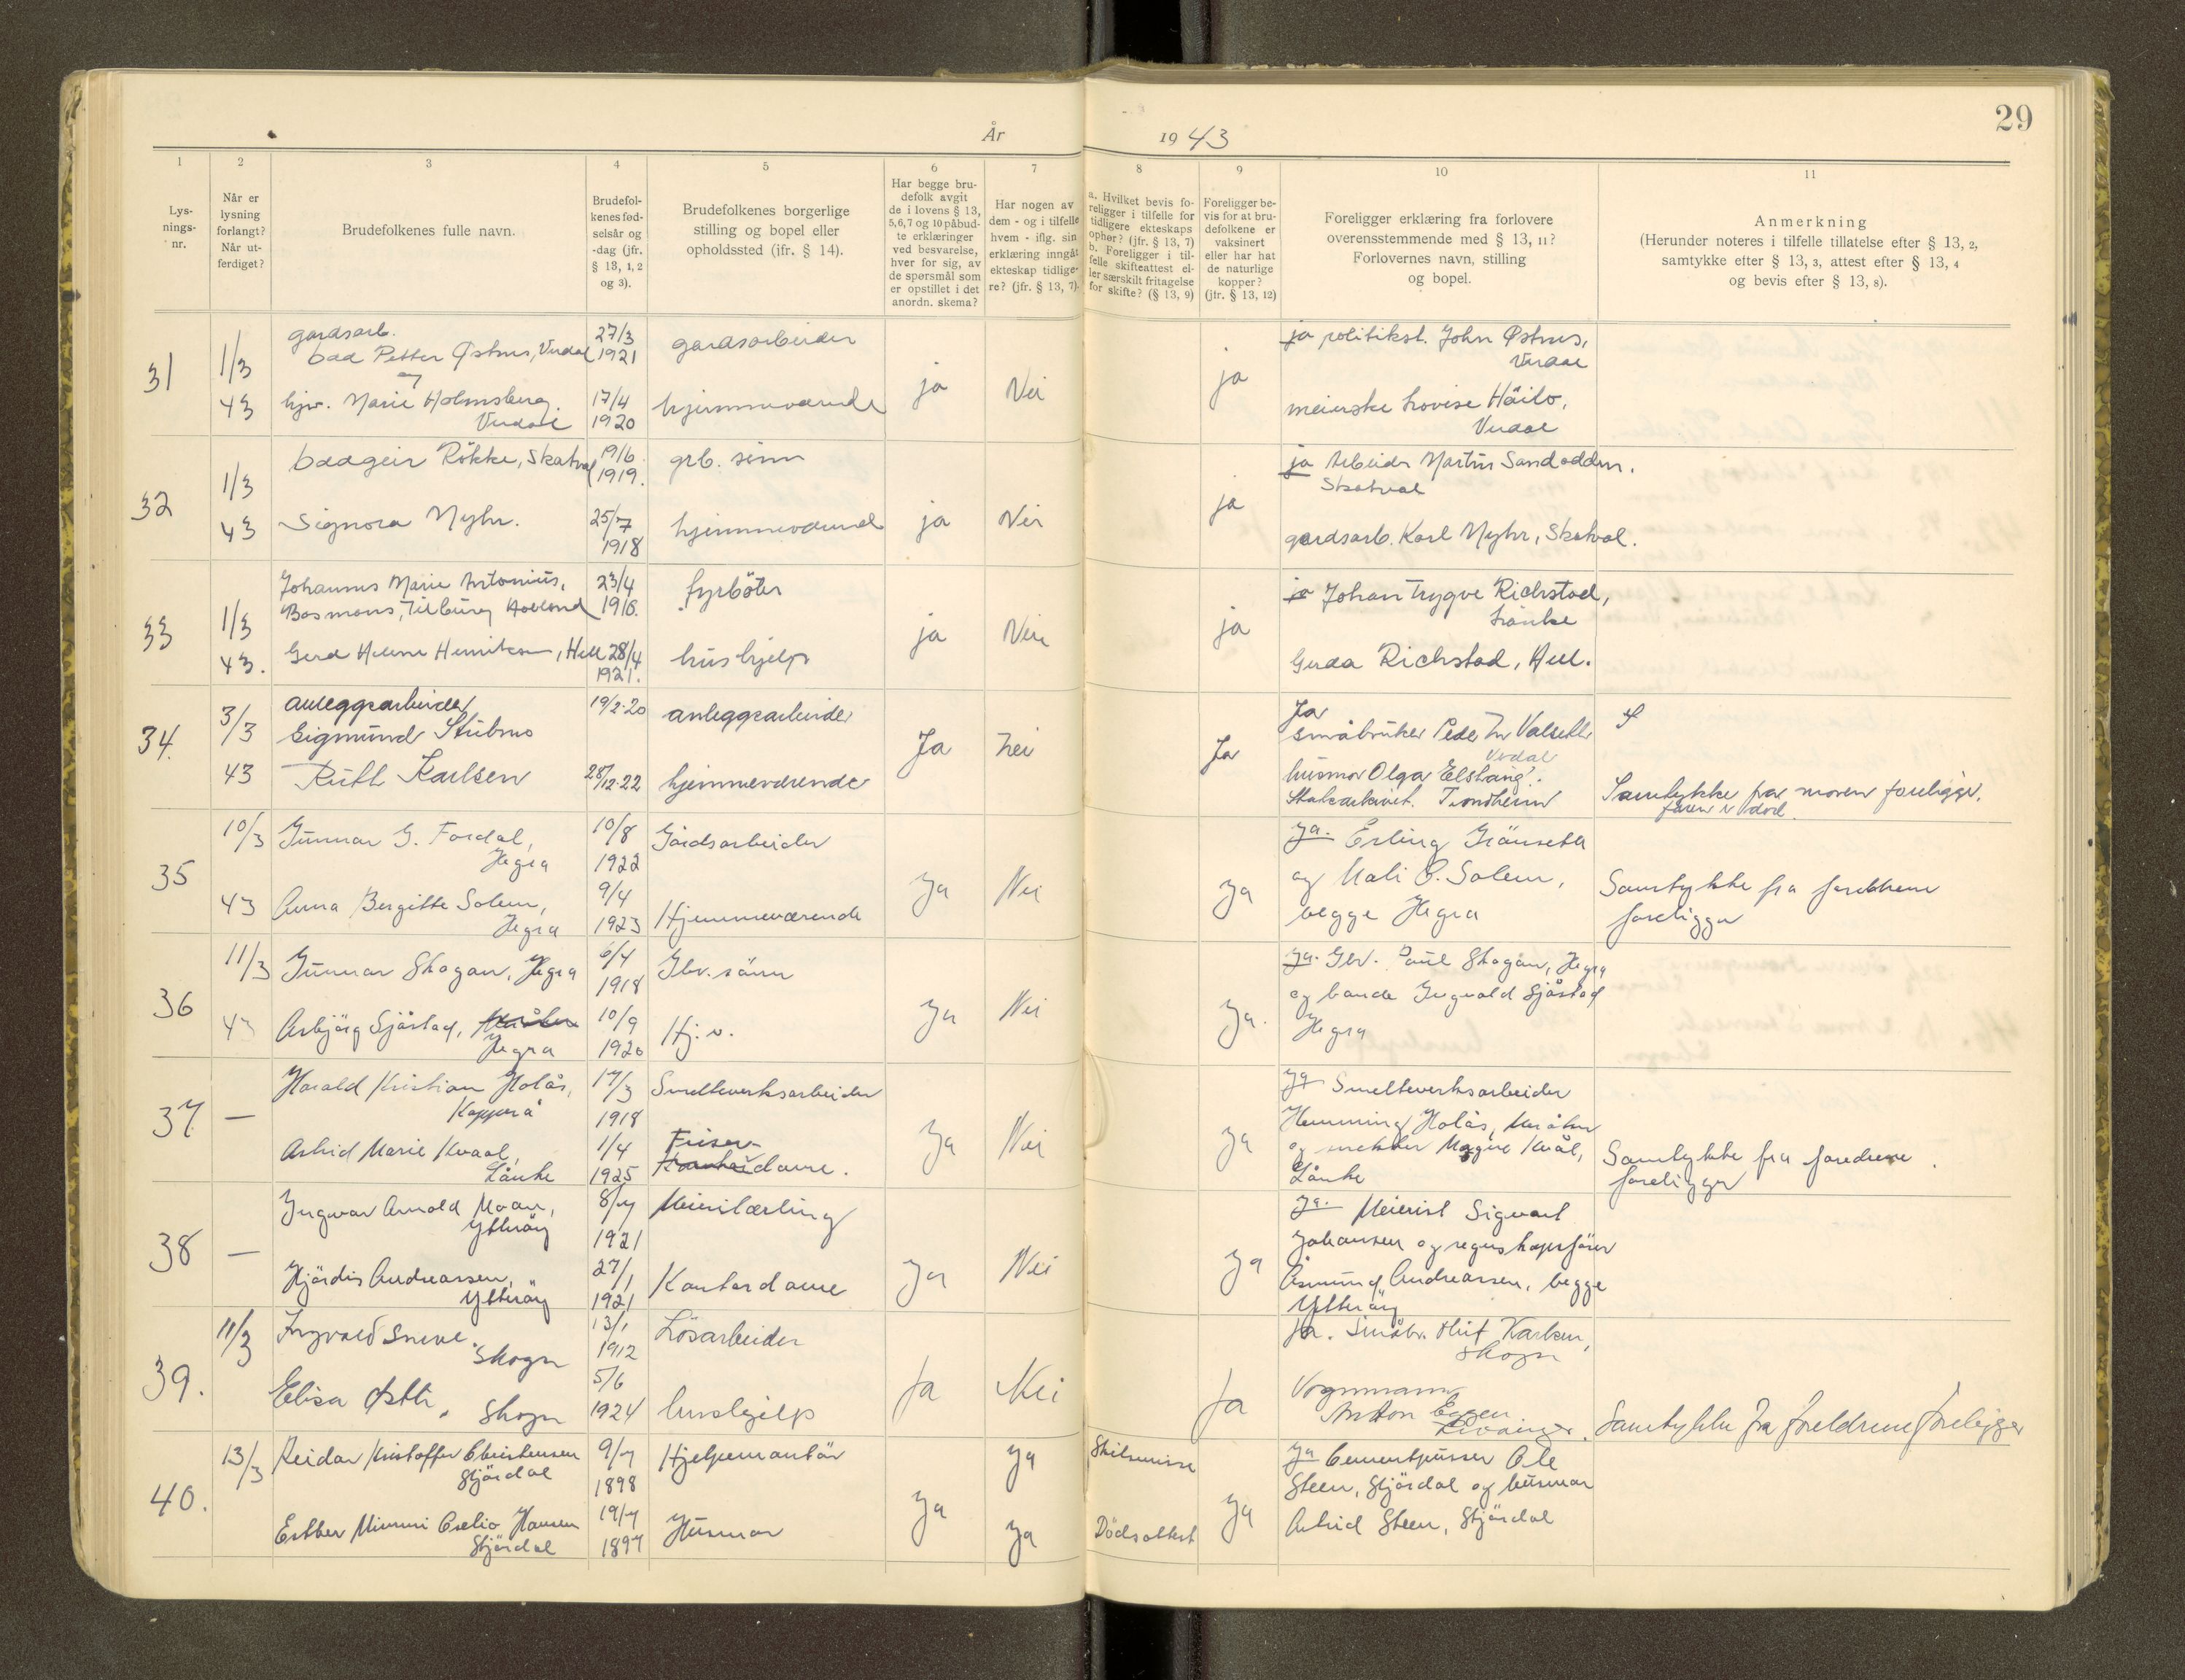 29
År 1943
1
2
3
4
5
6
7
8
9
10
11
Lys-
nings-
nr.
Når er
lysning
forlangt?
Når ut-
ferdiget?
Brudefolkenes fulle navn.
Brudefol-
kenes fød-
selsår og
-dag (jfr.
§ 13, 1, 2
og 3).
Brudefolkenes borgerlige
stilling og bopel eller
opholdssted (jfr. § 14).
Har begge bru-
defolk avgit
de i lovens § 13,
5,6,7 og 10 påbud-
te erklæringer
ved besvarelse,
hver for sig, av
de spørsmål som
er opstillet i det
anordn. skema?
Har nogen av
dem - og i tilfelle
hvem - iflg. sin
erklæring inngåt
ekteskap tidlige-
re? (jfr. § 13, 7).
a. Hvilket bevis fo-
religger i tilfelle for
tidligere ekteskaps
ophør? (jfr. § 13, 7)
b. Foreligger i til-
felle skifteattest el-
ler særskilt fritagelse
for skifte? (§ 13, 9)
Foreligger be-
vis for at bru-
defolkene er
vaksinert
eller har hat
de naturlige
kopper?
(jfr. § 13, 12)
Foreligger erklæring fra forlovere
overensstemmende med § 13, 11?
Forlovernes navn, stilling
og bopel.
Anmerkning
(Herunder noteres i tilfelle tillatelse efter § 13, 2,
samtykke efter § 13, 3, attest efter § 13, 4
og bevis efter § 13, 8).
31
1/3
43
gardsarb.
Petter Østnes, Verdal
og
hjv. Marie Holmsberg
Verdal
27/3
1921
17/4
1920
gardsarbeider
hjemmeværende
ja
Nei
ja
ja politikst. John Østnes,
Verdal
meierske Lovise Häilo,
Verdal
32
1/3
43
Oddgeir Røkke, Skatval
Signora Myhr.
19/6.
1919.
25/7
1918
grb. sønn
hjemmeværende
ja
Nei
ja
ja Arbeider Martin Sandodden.
Skatval
gardsarb. Karl Myhr, Skatval.
33
1/3
43.
Johannes Marie Antonius,
Bosmans, Tilburg Holland
Gerd Helene Henriksen, Hell
23/4
28/4
1921.
fyrbøter
hushjelp
ja
Nei
ja
ja Johan Trygve Richstad,
Lånke
Gerda Richstad, Hell.
34.
3/3
43
anleggsarbeider
Sigmund Stubmo
Ruth Karlsen
19/2-20
28/12-22
anleggsarbeider
hjemmeværende
Ja
nei
Ja
Ja
småbruker Peder Valseth
Verdal
husmor Olga
Trondheim
Samtykke fra moren foreligger.
faren er død.
35
10/3
43
Gunnar G. Fordal,
Hegra
Anna Bergitte Solem,
Hegra
10/8
1922
9/4
1923
Gårdsarbeider
Hjemmeværende
Ja
Nei
Ja
Ja. Erling
og Mali O. Solem,
begge Hegra
Samtykke fra foreldrene
foreligger
36
11/3
43
Gunnar Skogan, Hegra
Asbjørg Sjåstad, Meråker
Hegra
6/4
1918
10/9
1920
Gbr. sønn
Hj. v.
Ja
Nei
Ja.
Ja. Gbr. Paul Skogan, Hegra
og bonde Ingvald Sjåstad
Hegra
37
—
Harald Kristian Holås,
Kopperå
Astrid Marie Kvaal,
Lånke
17/3
1918
1/4
1925
Smelteverksarbeider
Friser-
Kontordame.
Ja
Nei
Ja
Ja Smelteverksarbeider
Hemming Holås, Meråker
og snekker Magne Kvål,
Lånke
Samtykke fra foredrene
foreligger
38
—
Ingvar Arnold Moan,
Ytterøy
Hjørdis Andreassen,
Ytterøy
8/7
1921
27/1
1921
Meierilærling
Kontordame
Ja
Nei
Ja
Ja. Meierist Sigvart
Johansen og regnskapsfører
Åsmund Andreassen, begge
Ytterøy
39.
11/3
Ingvald Sneve.
Skogn
Elisa Østli,
Skogn
13/1
1912
5/6
1924
Løsarbeider
hushjelp
Ja
Nei
Ja
Ja. Småbr. Oluf Karlsen,
Skogn
Vognmann
Anton Eggen
Levanger.
Samtykke fra foreldrene foreligger
40.
13/3
Reidar Kristoffer Christensen
Stjørdal
Esther Mimmi Hansen
Stjørdal
9/7
1898
19/7
1897
Hjelpemontør
Husmor
Ja
Ja
Ja
Skilsmisse
Dødsattest
Ja
Ja Cementpusser Ole
Steen, Stjørdal og husmor
Astrid Steen, Stjørdal